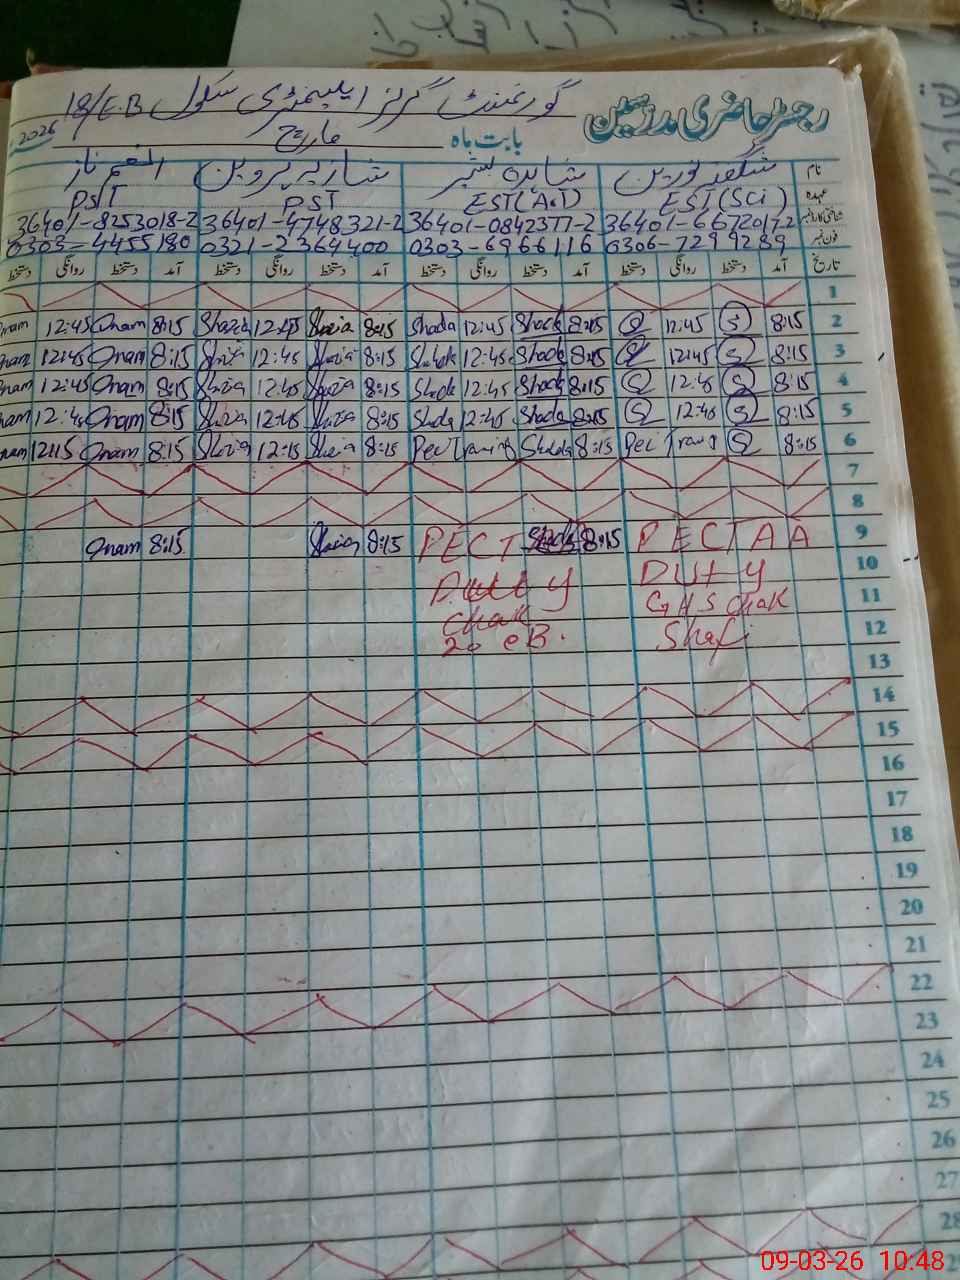 رجسٹر حاضری مدرسین گورنمنٹ گرلز ایلیمنٹری سکول 18/E.B
بابت ماہ مارچ 2026
نام شگفتہ نورین شاہدہ شازیہ پروین ناز
عہدہ EST(Sci) EST(A.T) PST PST
شناختی کارڈ نمبر 36401-6672017-2 36401-0842377-2 36401-4748321-2 36401-8253018-2
فون نمبر 0306-7299289 0303-6966116 0321-2364400 0303-4455180
تاریخ آمد دستخط روانگی دستخط آمد دستخط روانگی دستخط آمد دستخط روانگی دستخط آمد دستخط روانگی دستخط
1
2 8:15 S 12:45 S 8:15 Shada 12:45 Shada 8:15 Shazia 12:45 Shazia 8:15 Onam 12:45 Onam
3 8:15 S 12:45 S 8:15 Shada 12:45 8:15 Shazia 12:45 Shazia 8:15 Onam 12:45 Onam
4 8:15 S 12:45 S 8:15 Shada 12:45 Shada 8:15 Shazia 12:45 Shazia 8:15 Onam 12:45 Onam
5 8:15 S 12:45 S 8:15 Shada 12:45 Shada 8:15 Shazia 12:45 Shazia 8:15 Onam 12:45 Onam
6 8:15 S Pec 8:15 Shada Pec 8:15 Shazia 12:15 Shazia 8:15 Onam 12:15 Onam
7
8
9 PECTAA 8:15 PECT 8:15 Shazia 8:15 Onam
10 DUTY Duty
11 GHS Chak Chak
12 Shafi 20 EB.
13
14
15
16
17
18
19
20
21
22
23
24
25
26
27
28
09-03-26 10:48